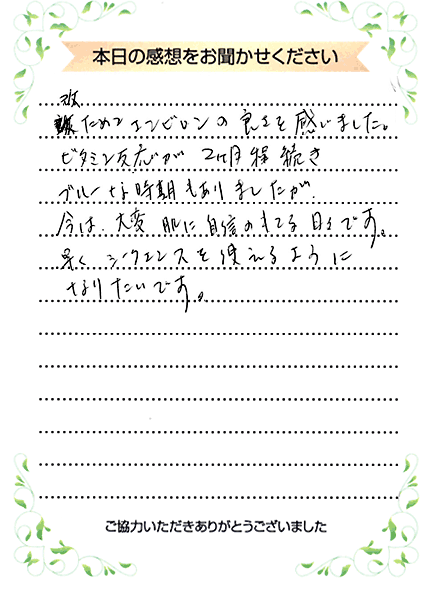 本日の感想をお聞かせください
改
ためてエンビロンの良さを感じました。
ビタミン反応が 2ヶ月程続き
ブルーな時期もありましたが、
今は、大変 肌に自信のもてる日々です。
早く シークエンスを使えるように
なりたいです。
ご協力いただきありがとうございました